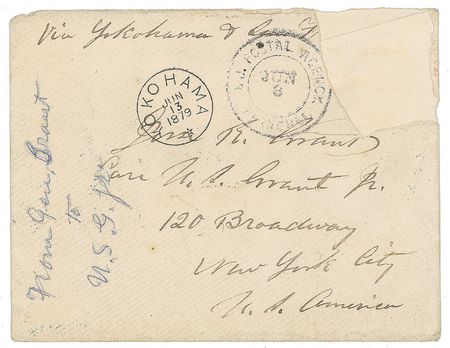 Via Yokohama &
U.S. POSTAL AGENCY
JUN
8
YOKOHAMA
JUN
13
1879
Jesse R. Grant
Care U.S. Grant Jr.
120 Broadway
New York City
U.S. America
From Gen. Grant
to
U.S.G. Jr.